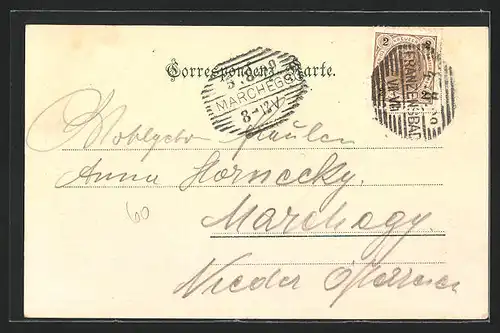 Correspondenz-Karte.
MARCHEGG
8-12V
2
FRANZENSBAD
Wohlgebor Fräulein
Anna Hornecky.
60
Marchegg.
Nieder Österreich